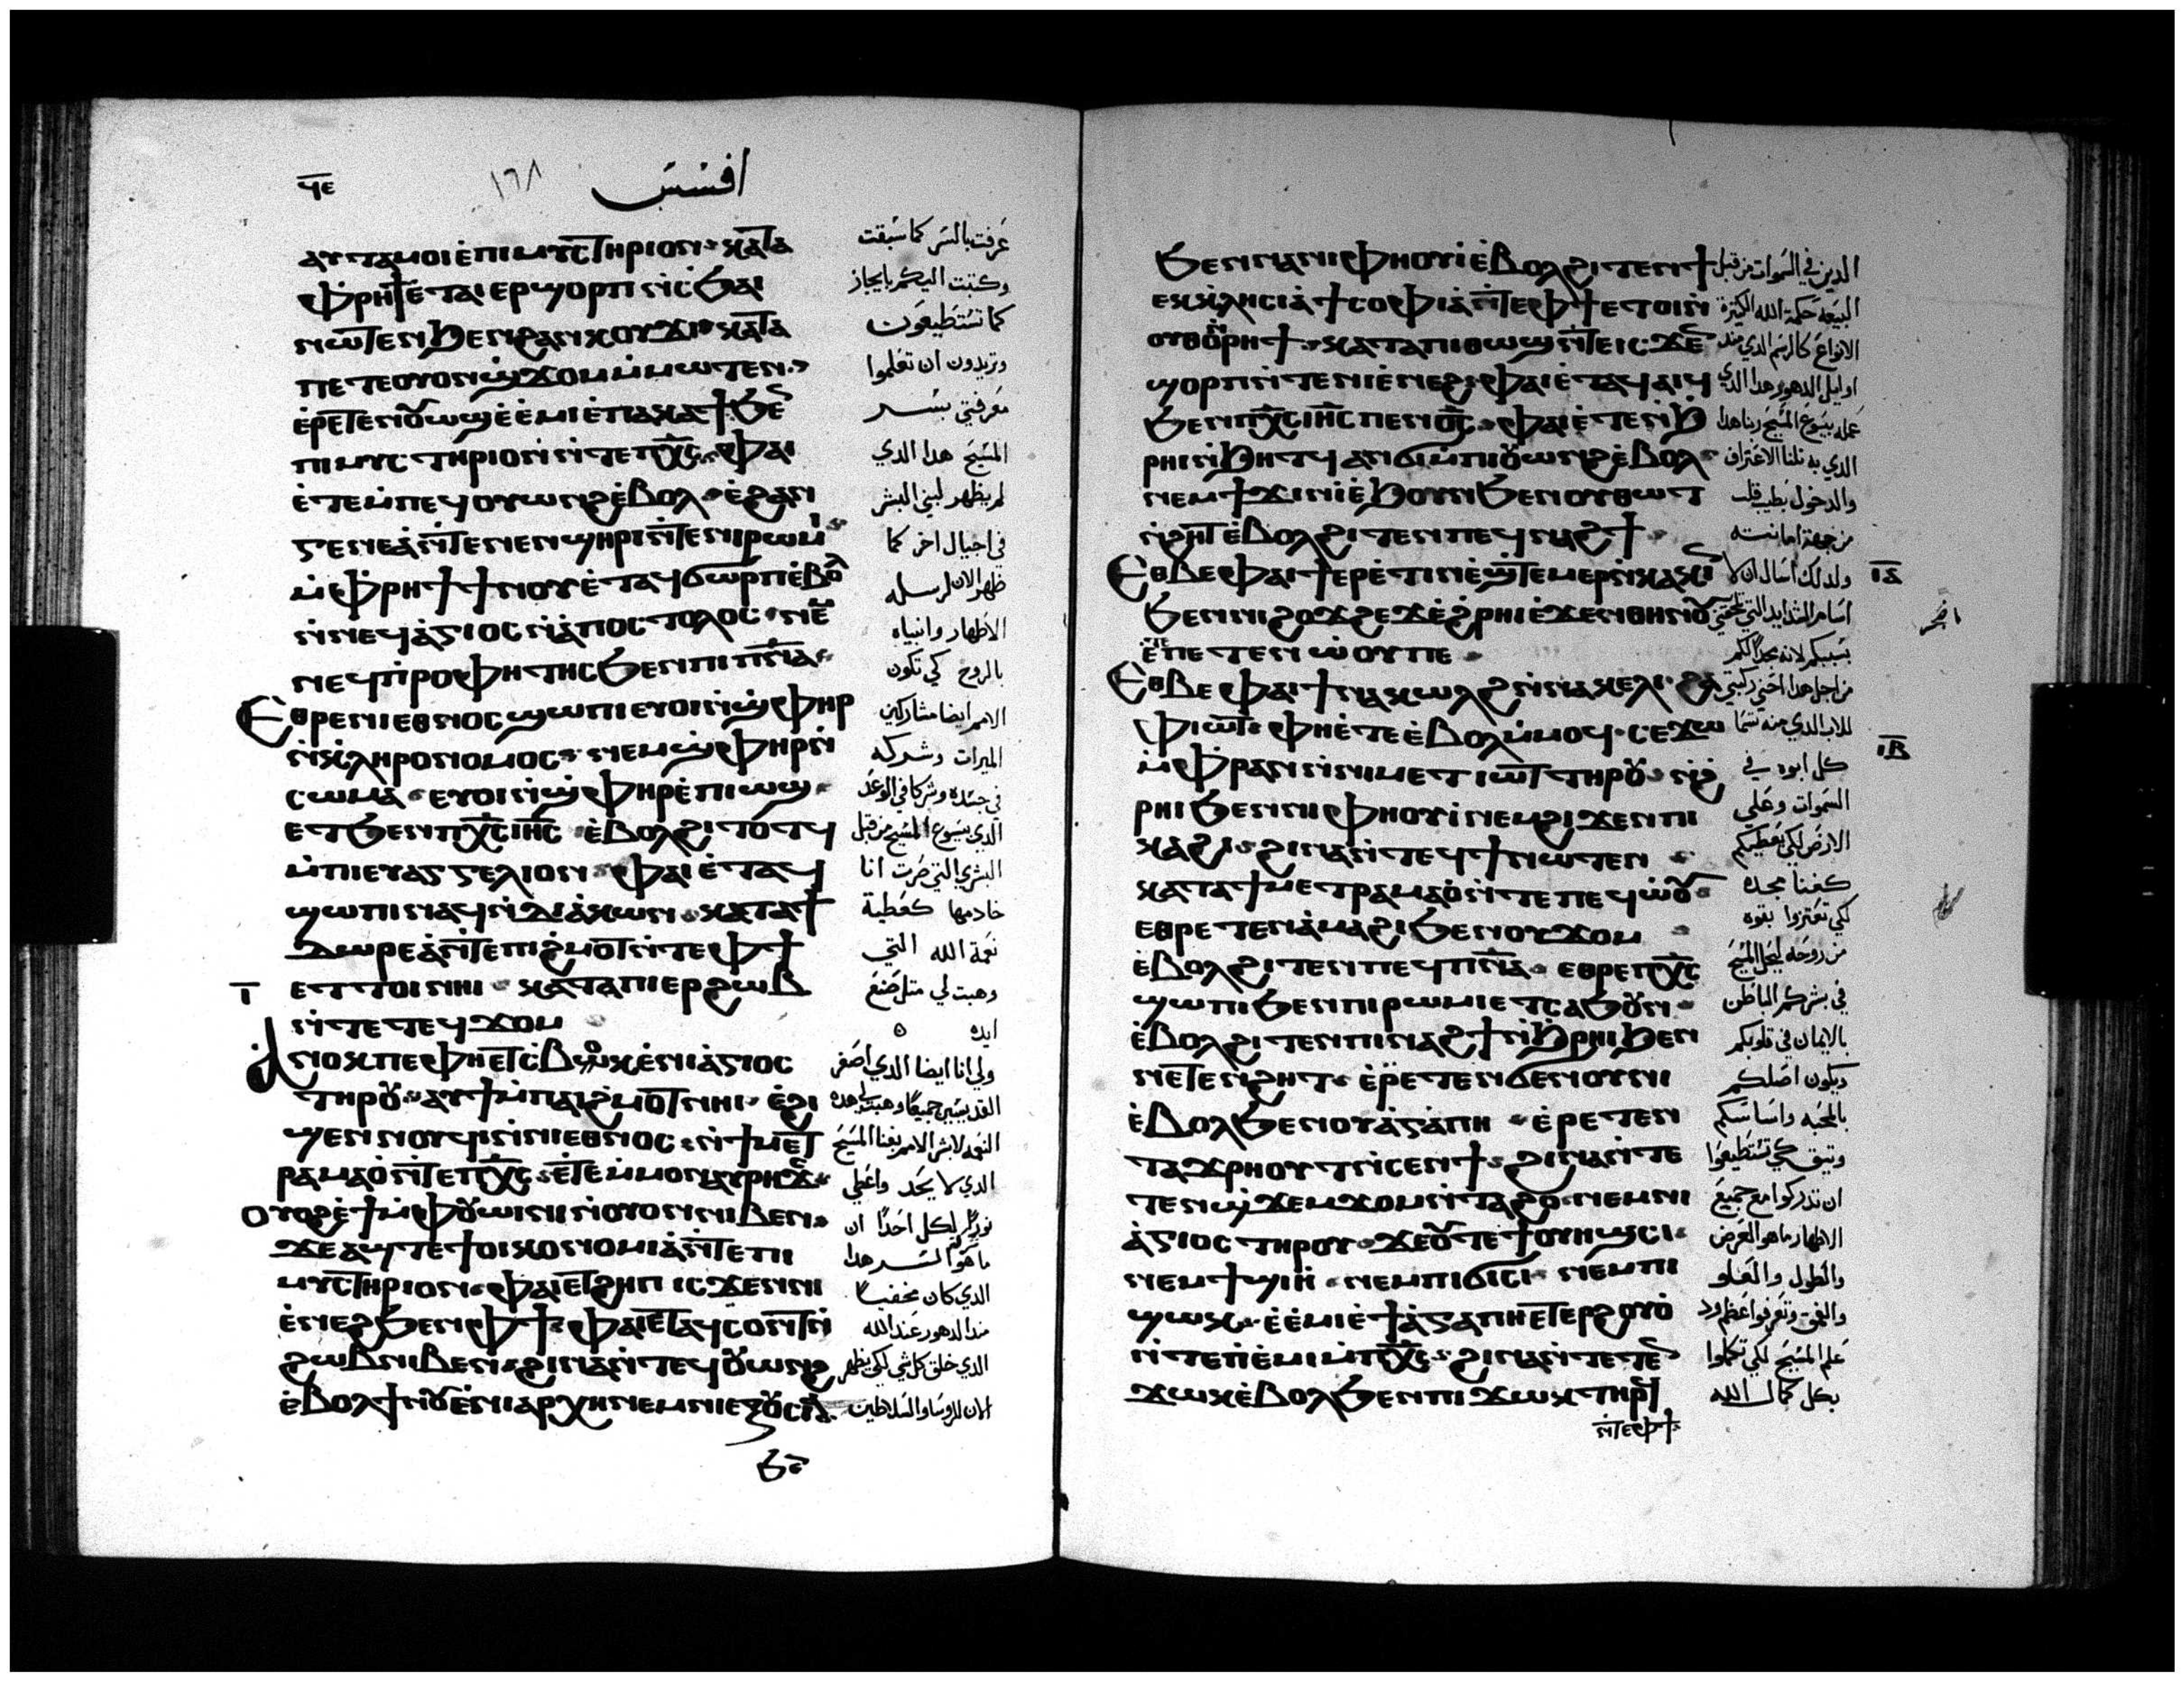 ϥⲉ
١٦٨
افسس
ⲁⲩⲧⲁⲙⲟⲓ ⲉ̀ⲡⲓⲙⲩⲥⲧⲏⲣⲓⲟⲛ ⲕⲁⲧⲁ
ⲫⲣⲏϯ ⲉ̀ⲧⲁⲓⲉⲣϣⲟⲣⲡ ⲛ̀ⲥϧⲁⲓ
ⲛⲱⲧⲉⲛ ϧⲉⲛ ϩⲁⲛⲕⲟⲩϫⲓ ⲕⲁⲧⲁ
ⲡⲉⲧⲉⲟⲩⲟⲛϣϫⲟⲙ ⲙ̀ⲙⲱⲧⲉⲛ
ⲉ̀ⲣⲉⲧⲉⲛⲟⲩⲱϣ ⲉ̀ⲉ̀ⲙⲓ ⲉ̀ⲡⲁⲕⲁϯ ϧⲉⲛ
ⲡⲓⲙⲩⲥⲧⲏⲣⲓⲟⲛ ⲛ̀ⲧⲉ ⲡⲭⲥ ⲫⲁⲓ
ⲉ̀ⲧⲉⲙ̀ⲡⲉϥⲟⲩⲱⲛϩ ⲉ̀ⲃⲟⲗ ⲉ̀ϩⲁⲛ
ⲅⲉⲛⲉⲁ̀ ⲛ̀ⲧⲉ ⲛⲉⲛϣⲏⲣⲓ ⲛ̀ⲧⲉ ⲛⲓⲣⲱⲙⲓ
ⲙ̀ⲫⲣⲏϯ ϯⲛⲟⲩ ⲉ̀ⲧⲁϥϭⲱⲣⲡ ⲉ̀ⲃⲟⲗ
ⲛ̀ⲛⲉϥⲁ̀ⲅⲓⲟⲥ ⲛ̀ⲁ̀ⲡⲟⲥⲧⲟⲗⲟⲥ ⲛⲉⲙ
ⲛⲉϥⲡ̀ⲣⲟⲫⲏⲧⲏⲥ ϧⲉⲛ ⲡⲓⲡⲛⲁ
Ⲉⲑⲣⲉ ⲛⲓⲉⲑⲛⲟⲥ ϣⲱⲡⲓ ⲉⲩⲟⲓ ⲛ̀ϣⲫⲏⲣ
ⲛ̀ⲕⲗⲏⲣⲟⲛⲟⲙⲟⲥ ⲛⲉⲙ ϣⲫⲏⲣ ⲛ̀
ⲥⲱⲙⲁ ⲉⲩⲟⲓ ⲛ̀ϣⲫⲏⲣ ⲉ̀ⲡⲓⲱϣ
ⲉⲧϧⲉⲛ ⲡⲭⲥ ⲓⲏⲥ ⲉ̀ⲃⲟⲗϩⲓⲧⲟⲧϥ
ⲙ̀ⲡⲓⲉⲩⲁⲅⲅⲉⲗⲓⲟⲛ ⲫⲁⲓ ⲉ̀ⲧⲁⲓ
ϣⲱⲡⲓ ⲛⲁϥ ⲛ̀ⲇⲓⲁ̀ⲕⲱⲛ ⲕⲁⲧⲁ ϯ
ⲇⲱⲣⲉⲁ̀ ⲛ̀ⲧⲉ ⲡⲓϩⲙⲟⲧ ⲛ̀ⲧⲉ ⲫϯ
ⲉⲧⲧⲟⲓ ⲛⲏⲓ ⲕⲁⲧⲁ ⲡⲓⲉⲣϩⲱⲃ
ⲓ
ⲛ̀ⲧⲉ ⲧⲉϥϫⲟⲙ
Ⲁ̀ⲛⲟⲕ ⲡⲉ ⲫⲏ ⲉⲧⲥⲃⲟⲕ ⲉ̀ⲛⲓⲁ̀ⲅⲓⲟⲥ
ⲧⲏⲣⲟⲩ ⲁⲩϯ ⲙ̀ⲡⲁⲓϩⲙⲟⲧ ⲛⲏⲓ ⲉ̀ϩⲓ
ϣⲉⲛⲛⲟⲩϥⲓ ⲛ̀ⲛⲓⲉⲑⲛⲟⲥ ⲛ̀ϯⲙⲉⲧ
ⲣⲁⲙⲁⲟ̀ ⲛ̀ⲧⲉ ⲡⲭⲥ ⲉ̀ⲧⲉⲙ̀ⲙⲟⲛ ⲁⲩⲣⲏϫⲥ
Ⲟⲩⲟϩ ⲉ̀ϯ ⲙ̀ⲫⲟⲩⲱⲓⲛⲓ ⲛ̀ⲟⲩⲟⲛ ⲛⲓⲃⲉⲛ
ϫⲉ ⲁϣ ⲧⲉ ϯⲟⲓⲕⲟⲛⲟⲙⲓⲁ̀ ⲛ̀ⲧⲉ ⲡⲓ
ⲙⲩⲥⲧⲏⲣⲓⲟⲛ ⲫⲁⲓ ⲉⲧϩⲏⲡ ⲓⲥϫⲉⲛ ⲛⲓ
ⲉ̀ⲛⲉϩ ϧⲉⲛ ⲫϯ ⲫⲁⲓ ⲉⲧⲁϥⲥⲟⲛⲧ ⲛ̀
ϩⲱⲃ ⲛⲓⲃⲉⲛ ϩⲓⲛⲁ ⲛ̀ⲧⲉϥⲟⲩⲱⲛϩ
ⲉ̀ⲃⲟⲗ ϯⲛⲟⲩ ⲉ̀ⲛⲓⲁⲣⲭⲏ ⲛⲉⲙ ⲛⲓⲉⲝⲟⲩⲥⲓⲁ
ϧⲉⲛ
عرفت بالسر كما سبقت
وكتبت اليكم بايجاز
كما تستطيعون
وتريدون ان تعلموا
معرفتي بسر
المسيح هدا الدي
لم يظهر لبني البشر
في اجيال اخر كما
ظهر الان لرسله
الاطهار وانبياه
بالروح كي تكون
الامم ايضا مشاركين
الميرات وشركه
في جسده وشركا في الوعد
الدي بيسوع المسيح من قبل
البشري التي صرت انا
خادمها كعطية
نعمة الله التي
وهبت لي متل صنع
ايده
ولي انا ايضا الدي اصغر
القديسين جميعا وهبت لي هده
النعمه لابشر الامم بغنا المسيح
الدي لا يحد واعطي
نورا لكل احدا ان
ما هو السر هدا
الدي كان مخفيا
مند الدهور عند الله
الدي خلق كل شي لكي يظهر
الان للروسا والسلاطين
ϧⲉⲛ ⲛⲁ ⲛⲓⲫⲏⲟⲩⲓ̀ ⲉ̀ⲃⲟⲗϩⲓⲧⲉⲛ ϯ
ⲉⲕⲕⲗⲏⲥⲓⲁ̀ ϯⲥⲟⲫⲓⲁ̀ ⲛ̀ⲧⲉ ⲫϯ ⲉⲧⲟⲓ ⲛ̀
ⲟⲩⲑⲟ ⲛ̀ⲣⲏϯ ⲕⲁⲧⲁ ⲡⲓⲑⲱϣ ⲛ̀ⲧⲉ ⲓⲥϫⲉⲛ
ϣⲟⲣⲡ ⲛ̀ⲧⲉ ⲛⲓⲉ̀ⲛⲉϩ ⲫⲁⲓ ⲉ̀ⲧⲁϥⲁⲓϥ
ϧⲉⲛ ⲡⲭⲥ ⲓⲏⲥ ⲡⲉⲛⲟⲥ ⲫⲁⲓ ⲉ̀ⲧⲉⲛ̀ϧ
ⲣⲏⲓ ⲛ̀ϧⲏⲧϥ ⲁⲛϭⲓ ⲙ̀ⲡⲓⲟⲩⲱⲛϩ ⲉ̀ⲃⲟⲗ
ⲛⲉⲙ ϯϫⲓⲛⲓ̀ ⲉ̀ϧⲟⲩⲛ ϧⲉⲛ ⲟⲩⲑⲱⲧ
ⲛ̀ϩⲏⲧ ⲉ̀ⲃⲟⲗϩⲓⲧⲉⲛ ⲡⲉϥⲛⲁϩϯ
Ⲉⲑⲃⲉ ⲫⲁⲓ ϯⲉⲣⲉ̀ⲧⲓⲛ ⲉ̀ϣⲧⲉⲙⲉⲣⲛ̀ⲕⲁⲕⲓⲛ
ⲓⲁ
ϧⲉⲛ ⲛⲓϩⲟϫϩⲉϫ ⲉ̀ϩⲣⲏⲓ ⲉ̀ϫⲉⲛ ⲑⲏⲛⲟⲩ
ⲉ̀ⲧⲉ ⲡⲉⲧⲉⲛⲱ̀ⲟⲩ ⲡⲉ
Ⲉⲑⲃⲉ ⲫⲁⲓ ϯⲛⲁⲕⲱⲗϩ ⲛ̀ⲛⲁⲕⲉⲗⲓ ϩⲁ
ⲫⲓⲱⲧ ⲫⲏ ⲉ̀ⲧⲉ ⲉ̀ⲃⲟⲗ ⲙ̀ⲙⲟϥ ⲥⲉϫⲱ
ⲓⲃ
ⲙ̀ⲫⲣⲁⲛ ⲛ̀ⲛⲓⲙⲉⲧⲓⲱⲧ ⲧⲏⲣⲟⲩ ⲛ̀ϩ
ⲣⲏⲓ ϧⲉⲛ ⲛⲓⲫⲏⲟⲩⲓ̀ ⲛⲉⲙ ϩⲓϫⲉⲛ ⲡⲓ
ⲕⲁϩⲓ ϩⲓⲛⲁ ⲛ̀ⲧⲉϥϯ ⲛⲱⲧⲉⲛ
ⲕⲁⲧⲁ ϯⲙⲉⲧⲣⲁⲙⲁⲟ̀ ⲛ̀ⲧⲉ ⲡⲉϥⲱ̀ⲟⲩ
ⲉⲑⲣⲉⲧⲉⲛⲁ̀ⲙⲁϩⲓ ϧⲉⲛ ⲟⲩϫⲟⲙ
ⲉ̀ⲃⲟⲗϩⲓⲧⲉⲛ ⲡⲉϥⲡⲛⲁ ⲉⲑⲣⲉ ⲡⲭⲥ
ϣⲱⲡⲓ ϧⲉⲛ ⲡⲓⲣⲱⲙⲓ ⲉⲧⲥⲁϧⲟⲩⲛ
ⲉ̀ⲃⲟⲗϩⲓⲧⲉⲛ ⲡⲓⲛⲁϩϯ ⲛ̀ϧⲣⲏⲓ ϧⲉⲛ
ⲛⲉⲧⲉⲛϩⲏⲧ ⲉ̀ⲣⲉⲧⲉⲛϭⲉⲛⲟⲩⲛⲓ
ⲉ̀ⲃⲟⲗ ϧⲉⲛ ⲟⲩⲁ̀ⲅⲁⲡⲏ ⲉ̀ⲣⲉⲧⲉⲛ
ⲧⲁϫⲣⲏⲟⲩⲧ ⲛ̀ⲥⲉⲛϯ ϩⲓⲛⲁ ⲛ̀ⲧⲉ
ⲧⲉⲛϣϫⲉⲙϫⲟⲙ ⲛ̀ⲧⲁϩⲟ ⲛⲉⲙ ⲛⲓ
ⲁ̀ⲅⲓⲟⲥ ⲧⲏⲣⲟⲩ ϫⲉ ⲟⲩ ⲧⲉ ϯⲟⲩⲏϣⲥⲓ
ⲛⲉⲙ ϯϣⲓⲏ ⲛⲉⲙ ⲡⲓϭⲓⲥⲓ ⲛⲉⲙ ⲡⲓ
ϣⲱⲕ ⲉ̀ⲉ̀ⲙⲓ ⲉ̀ϯⲁ̀ⲅⲁⲡⲏ ⲉⲧⲉⲣϩⲟⲩⲟ̀
ⲛ̀ⲧⲉ ⲡⲉ̀ⲙⲓ ⲙ̀ⲡⲭⲥ ϩⲓⲛⲁ ⲛ̀ⲧⲉⲧⲉⲛ
ϫⲱⲕ ⲉ̀ⲃⲟⲗ ϧⲉⲛ ⲡⲓϫⲱⲕ ⲧⲏⲣϥ
ⲛ̀ⲧⲉ ⲫϯ
الدين في السموات من قبل
البيعه حكمة الله الكتيرة
الانواع كالرسم الدي مند
اوايل الدهور هدا الدي
عمله بيسوع المسيح ربنا هدا
الدي به نلنا الاعتراف
والدخول بطيب قلب
من جهة امانته
ولدلك اسال ان لا
اسام الشدايد التي تلحقني
بسببكم لانه مجدا لكم
من اجل هدا احني ركبتي
للاب الدي منه تسما
كل ابوه في
السموات وعلي
الارض لكي يعطيكم
كغنا مجده
لكي تعتزوا بقوه
من روحه ليحل المسيح
في بشركم الباطن
بالايمان في قلوبكم
ويكون اصلكم
بالمحبه واساسكم
وتيق كي تستطيعوا
ان تدركوا مع جميع
الاطهار ما هو العرض
والطول والعلو
والعمق وتعرفوا عظم ود
علم المسيح لكي تكملوا
بكل كمال الله